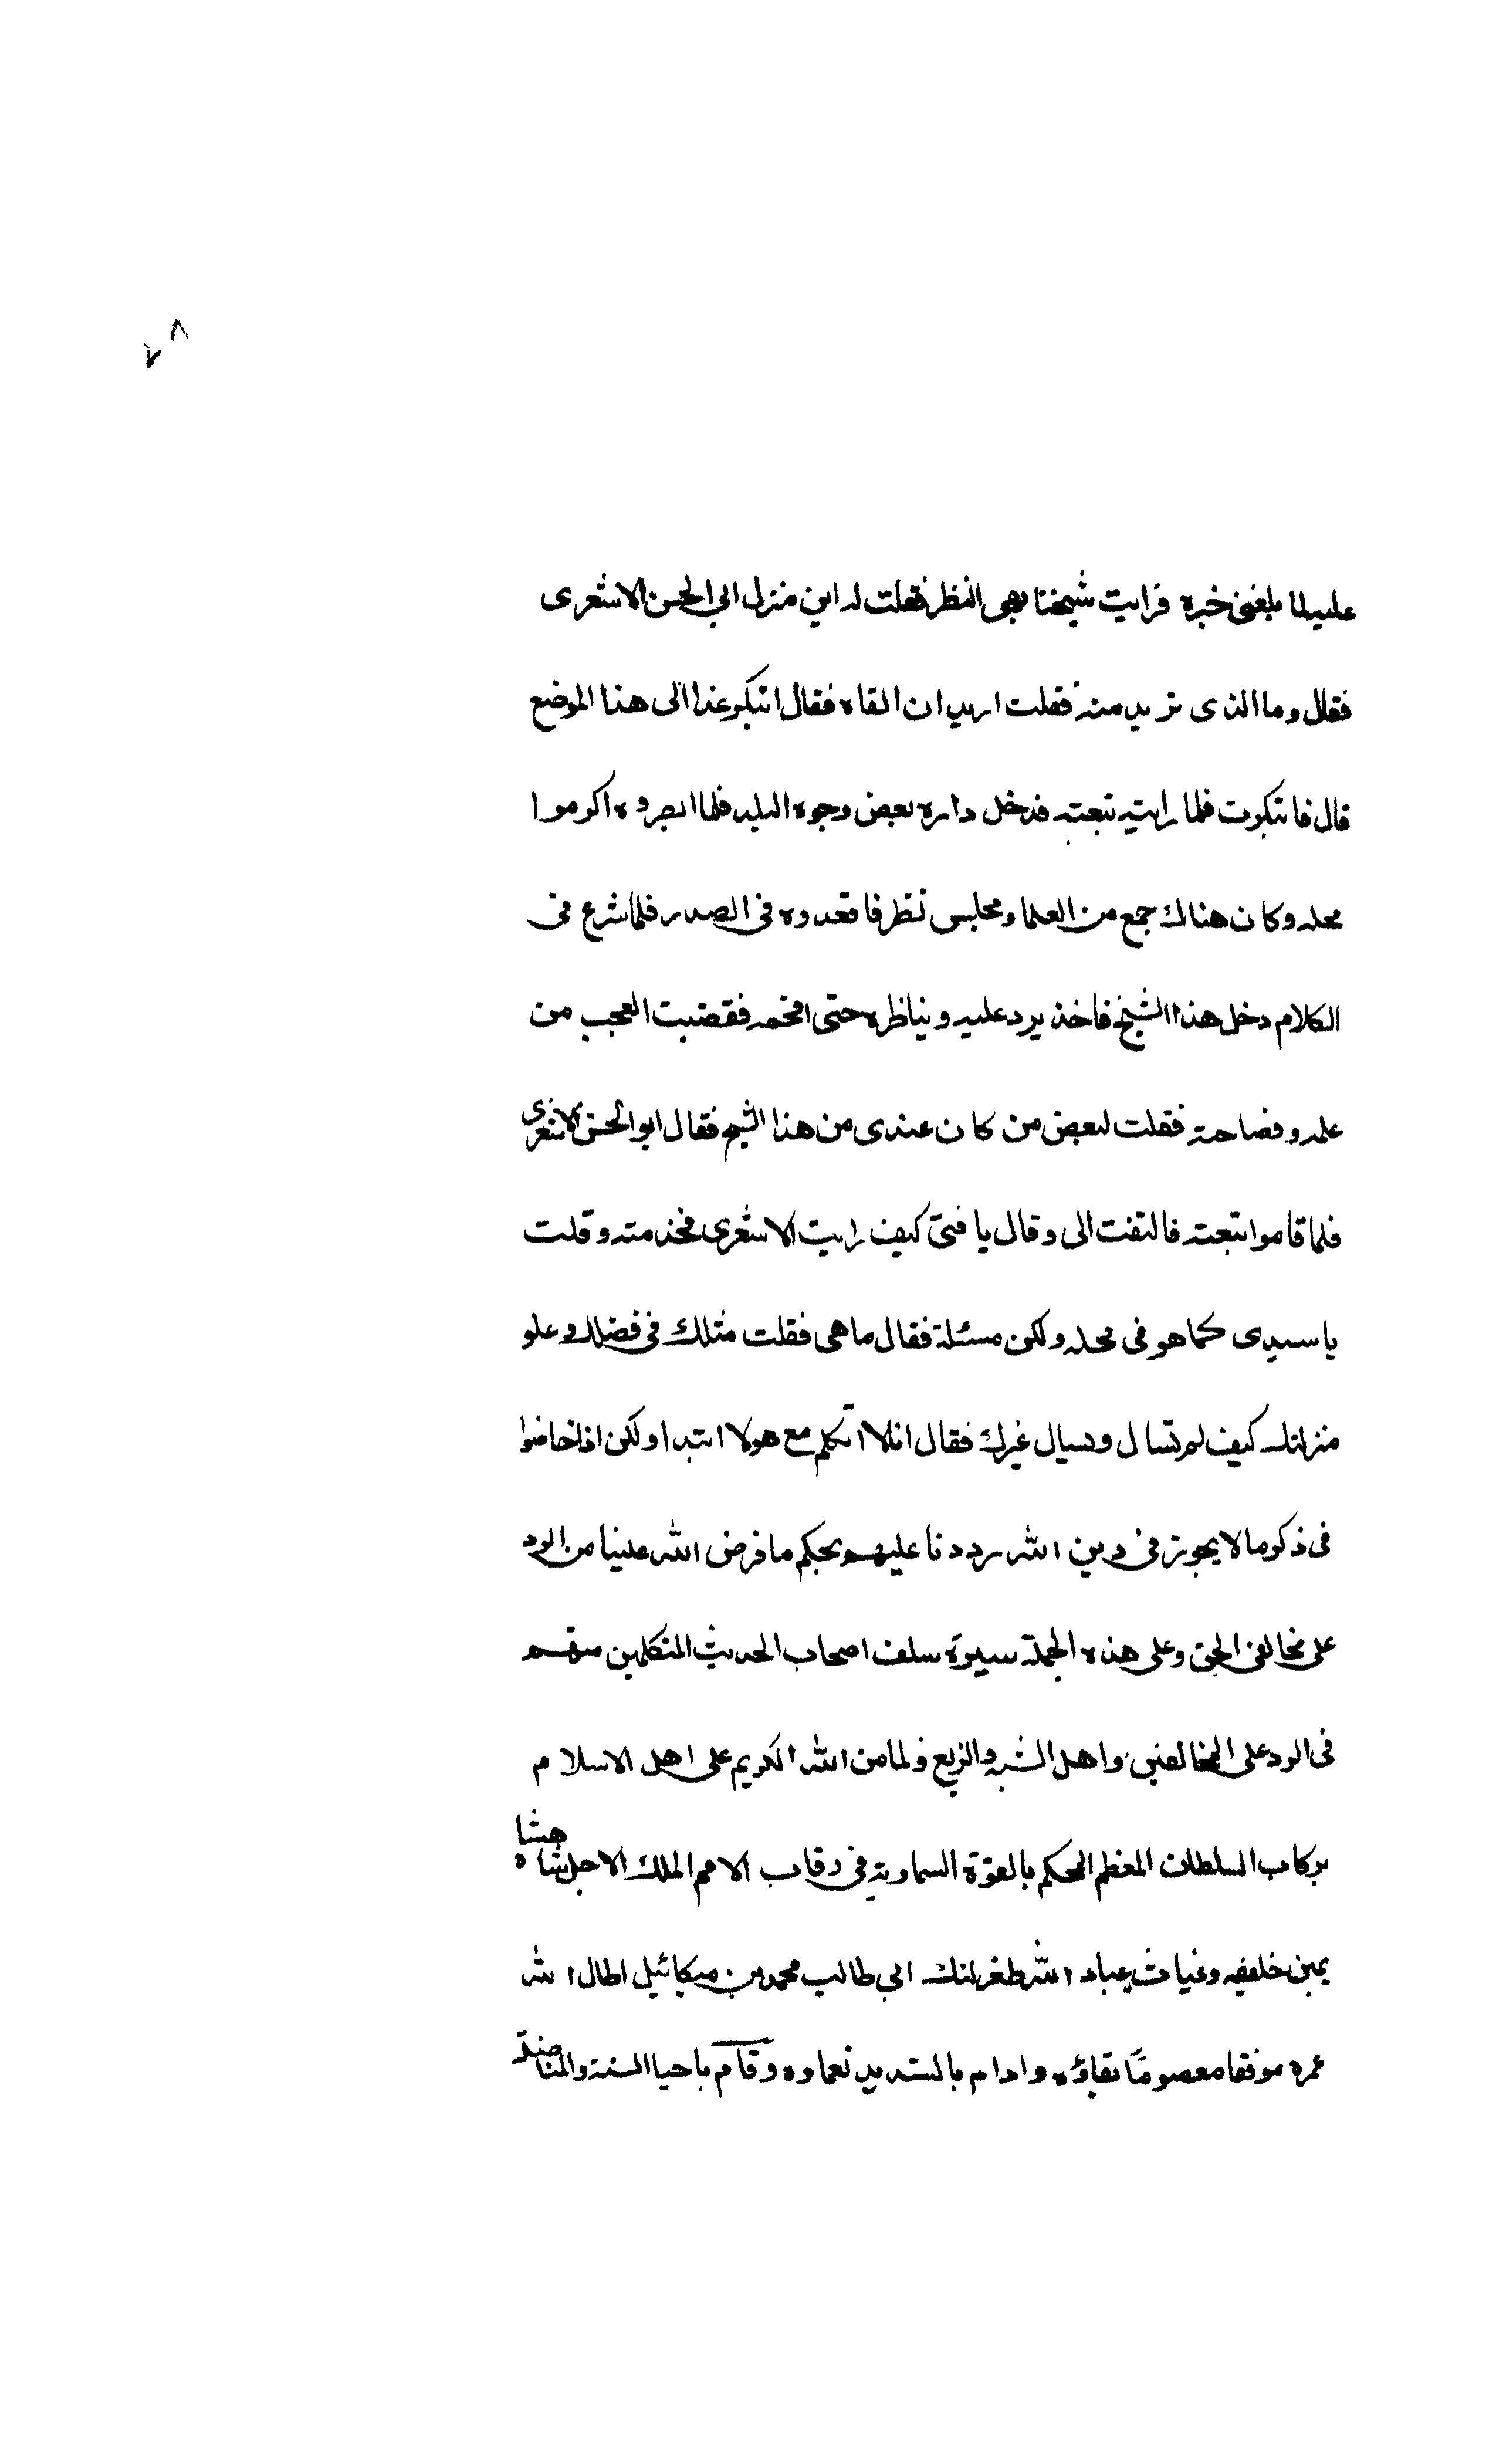 عليه لما بلغني خبره فرايت شيخنا بهي المنظر فقلت له اين منزل ابي الحسن الاشعري
فقال وما الذي تريد منه فقلت اريد ان القاه فقال ابتكر غدا الى هذا الموضع
قال فابتكرت فلما رايته تبعته فدخل داره بعض وجوه البلد فلما ابصروه اكرموا
محله وكان هناك جمع من العلما ومجلس نظر فاقعدوه في الصدر فلما شرع في
الكلام دخل هذا الشيخ فاخذ يرد عليه ويناظره حتى افحمه فقضيت العجب من
علمه وفصاحته فقلت لبعض من كان عندي من هذا الشيخ فقال ابو الحسن الاشعري
فلما قاموا تبعته فالتفت الى وقال يا فتى كيف رايت الاشعرى فخدمته وقلت
يا سيدى كما هو في محله ولكن مسئلة فقال ما هي فقلت مثلك في فضلك وعلو
منزلتك كيف لم تسال ويسال غيرك فقال انا لا اتكلم مع هولا ابتدا ولكن اذا خاضوا
في ذكر ما لا يجوز في دين الله رددنا عليهم بحكم ما فرض الله علينا من الرد
على مخالفي الحق وعلى هذه الجملة سيرة سلف اصحاب الحديث المتكلمين منهم
في الرد على المخالفين واهل الشبه والزيغ ولما من الله الكريم على اهل الاسلام
بركاب السلطان المعظم المحكم بالقوة السماوية في رقاب الامم الملك الاجل شاهنشاه
يمين خليفه وغياث عباد الله طغرلبك ابي طالب محمد بن ميكائيل اطال الله
عمره موفقا معصوما بقاؤه وادام بالتسديد نعماوه وقام باحيا السنة والمناضلة